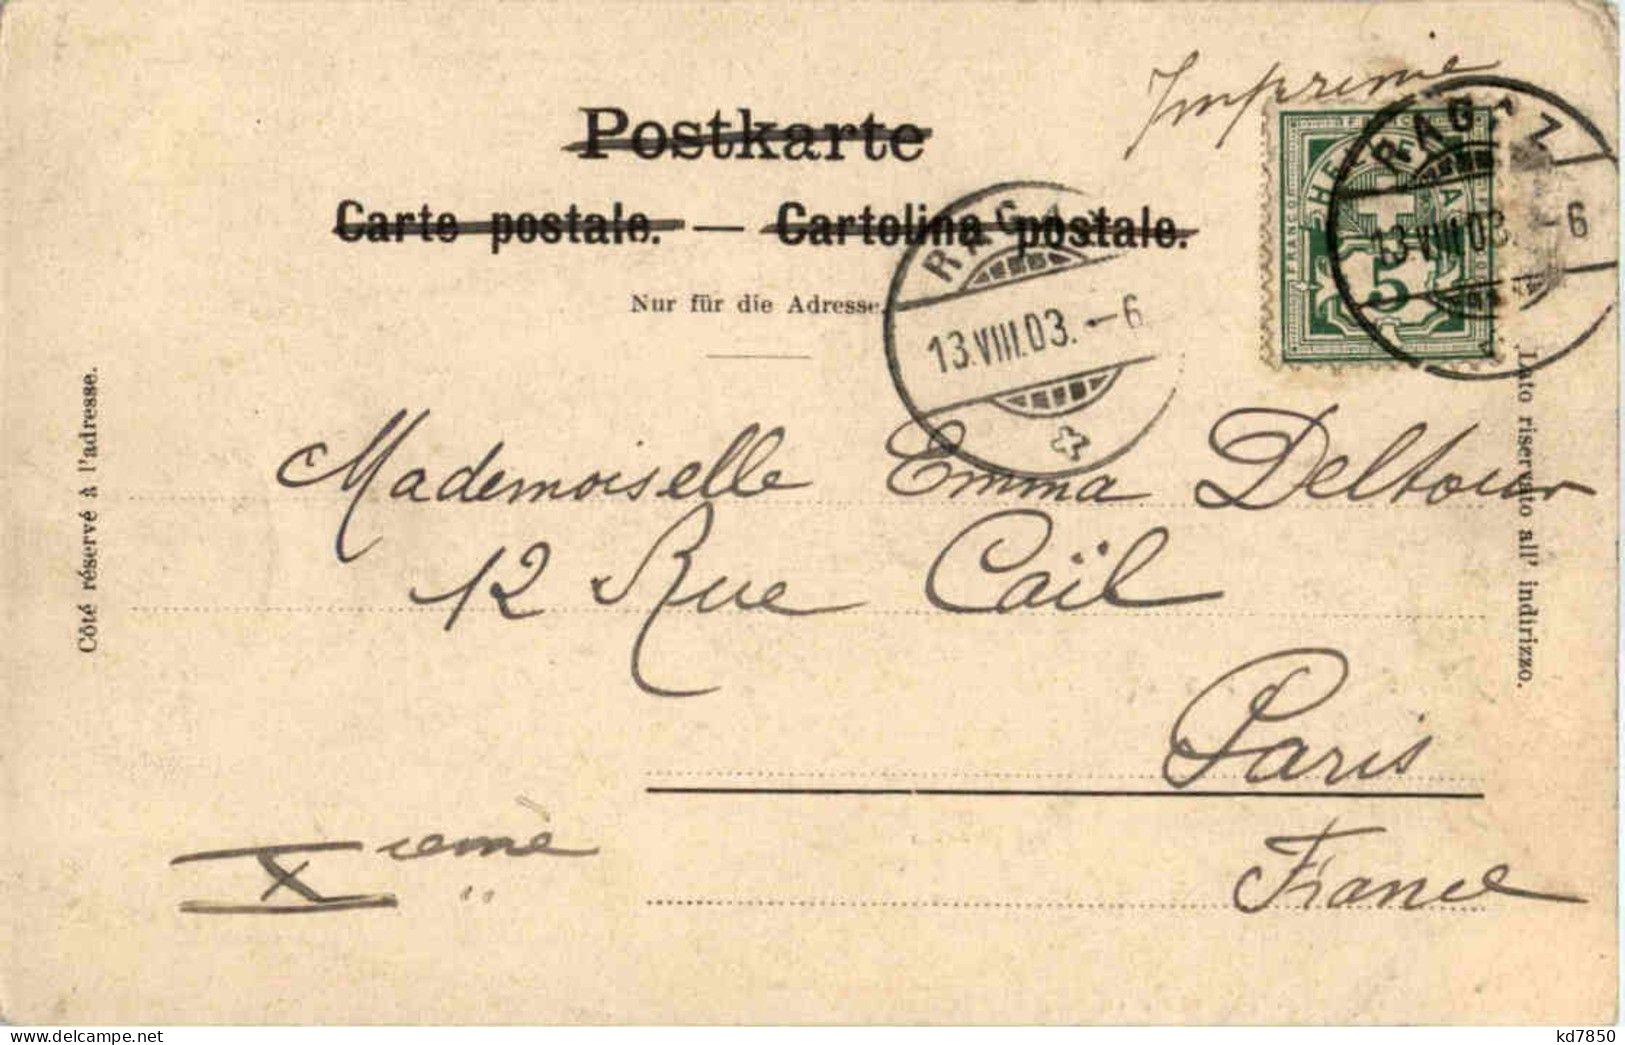 Imprimé
Postkarte
Carte postale. — Cartolina postale.
Nur für die Adresse.
RAGAZ
13.VIII.03.-6
RAGAZ
13.VIII.03. 6
FRANCO
HELVETIA
5
Côté réservé à l'adresse.
Lato riservato all' indirizzo.
Mademoiselle Emma Deltour
12 Rue Caïl
Paris
Xième
France
kd7850